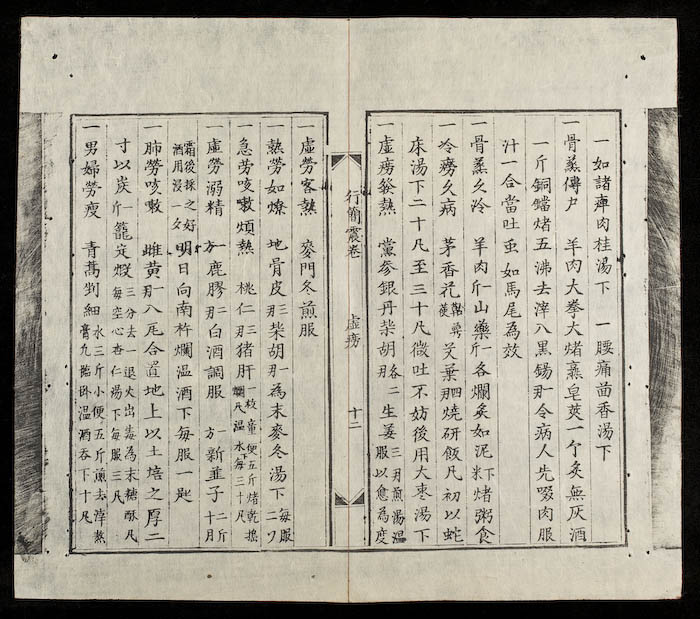 一如諸痺肉桂湯下　一腰痛茴香湯下
一骨蒸傳尸　羊肉大拳大煮熹皂莢一个炙無灰酒
一斤銅鐺煮五沸去滓八黒錫那一令病人先啜肉服
汁一合當吐虫如馬尾為效
一骨蒸久冷　羊肉斤一山藥斤一各爛炙如泥下米煮粥食
一冷癆久病　茅香花艾葉那四燒研飯凡初以蛇
床湯下二十凡至三十凡微吐不妨後用大枣湯下
一虛癆發熱　黨參銀丹柴胡各二那生姜三刃煎湯温服以愈為度
行簡震卷　虛癆　十二
一虛勞客熱　麥門冬煎服
一熱勞如燎　地骨皮那二柴胡那一為末麥冬湯下每服二刀
一急劳咳嗽煩熱　桃仁那三猪肝一枚童便五斤煮乾搗爛凡温水下每三十凡
一虛勞溺精　方鹿膠那二白酒調服　方新韮子二斤十月
霜後採之好酒用浸一夕明日向南杵爛温酒下每服一匙
一肺勞咳嗽　雌黃那一八尾合置地上以土培之厚二
寸以炭斤一籠定煅三分去一退火出毒為末糖酥凡每空心杏仁湯下每服三凡
一男婦勞瘦　青蒿剉細水三斤小便五斤煎去滓熬膏凡臨卧温酒吞下十凡